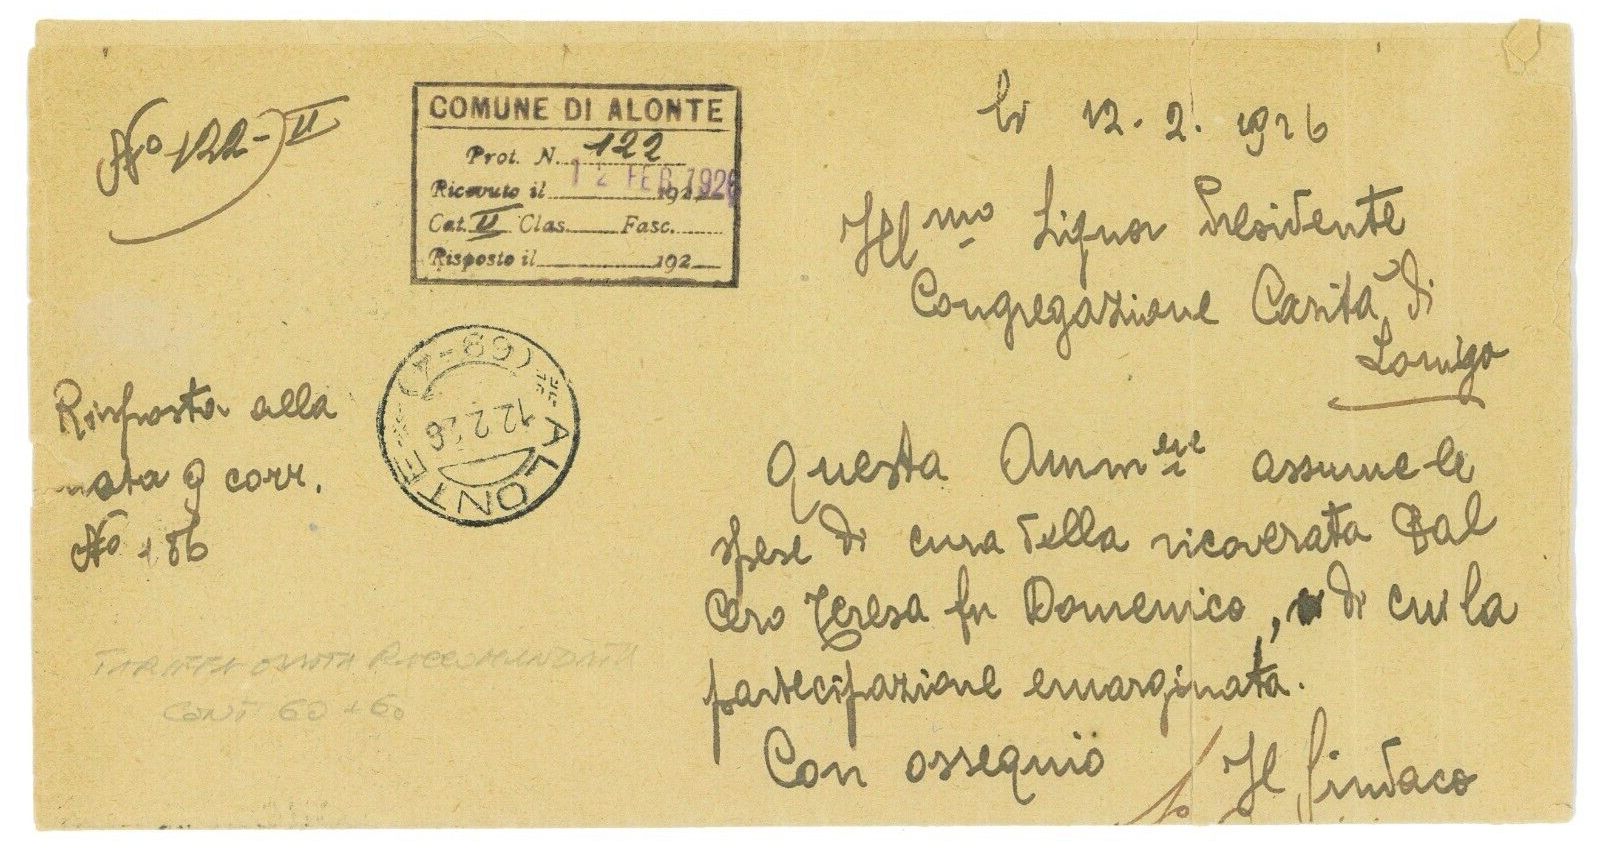 No 122-II
COMUNE DI ALONTE
Prot. N. 122
Ricevuto il 12 FEB 1926 192
Cat. II Clas. Fasc.
Risposto il 192
li 12. 2. 1926
Ill mo Signor Presidente
Congregazione Carità di
Lonigo
Risposta alla
nota 9 corr.
No 186
ALONTE
(68-4)
12.2.26
Questa Amm ne assume le
spese di cura della ricoverata Dal
Cero Teresa fu Domenico, di cui la
partecipazione emarginata.
Con ossequio
Il Sindaco
TARIFFA RACCOMANDATA
CENT 60 + 60